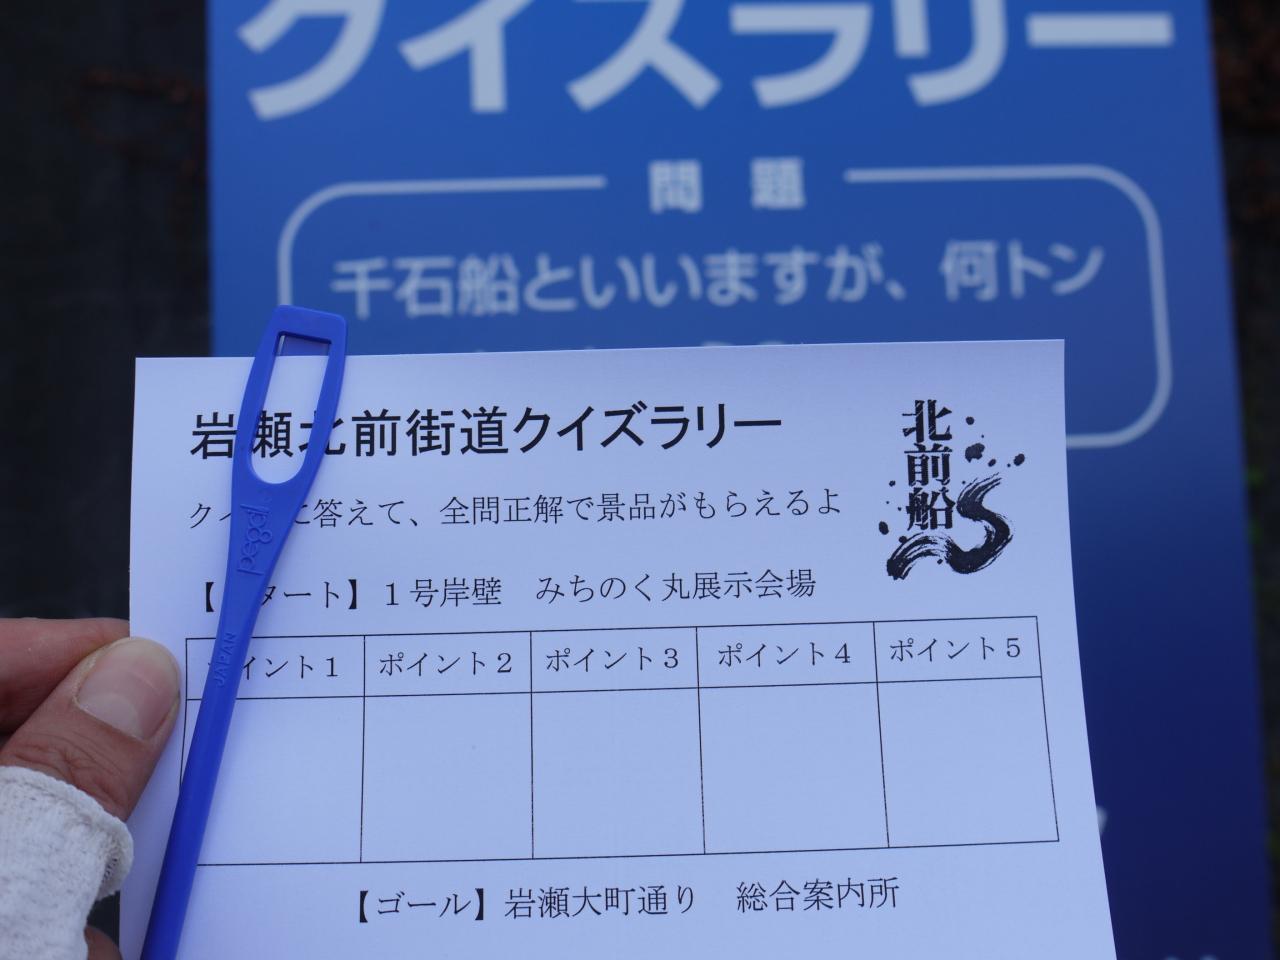 クイズラリー
問題
千石船といいますが、何トン
岩瀬北前街道クイズラリー
北前船
クイズに答えて、全問正解で景品がもらえるよ
【スタート】１号岸壁　みちのく丸展示会場
ポイント１ ポイント２ ポイント３ ポイント４ ポイント５
【ゴール】岩瀬大町通り　総合案内所
pegal
JAPAN